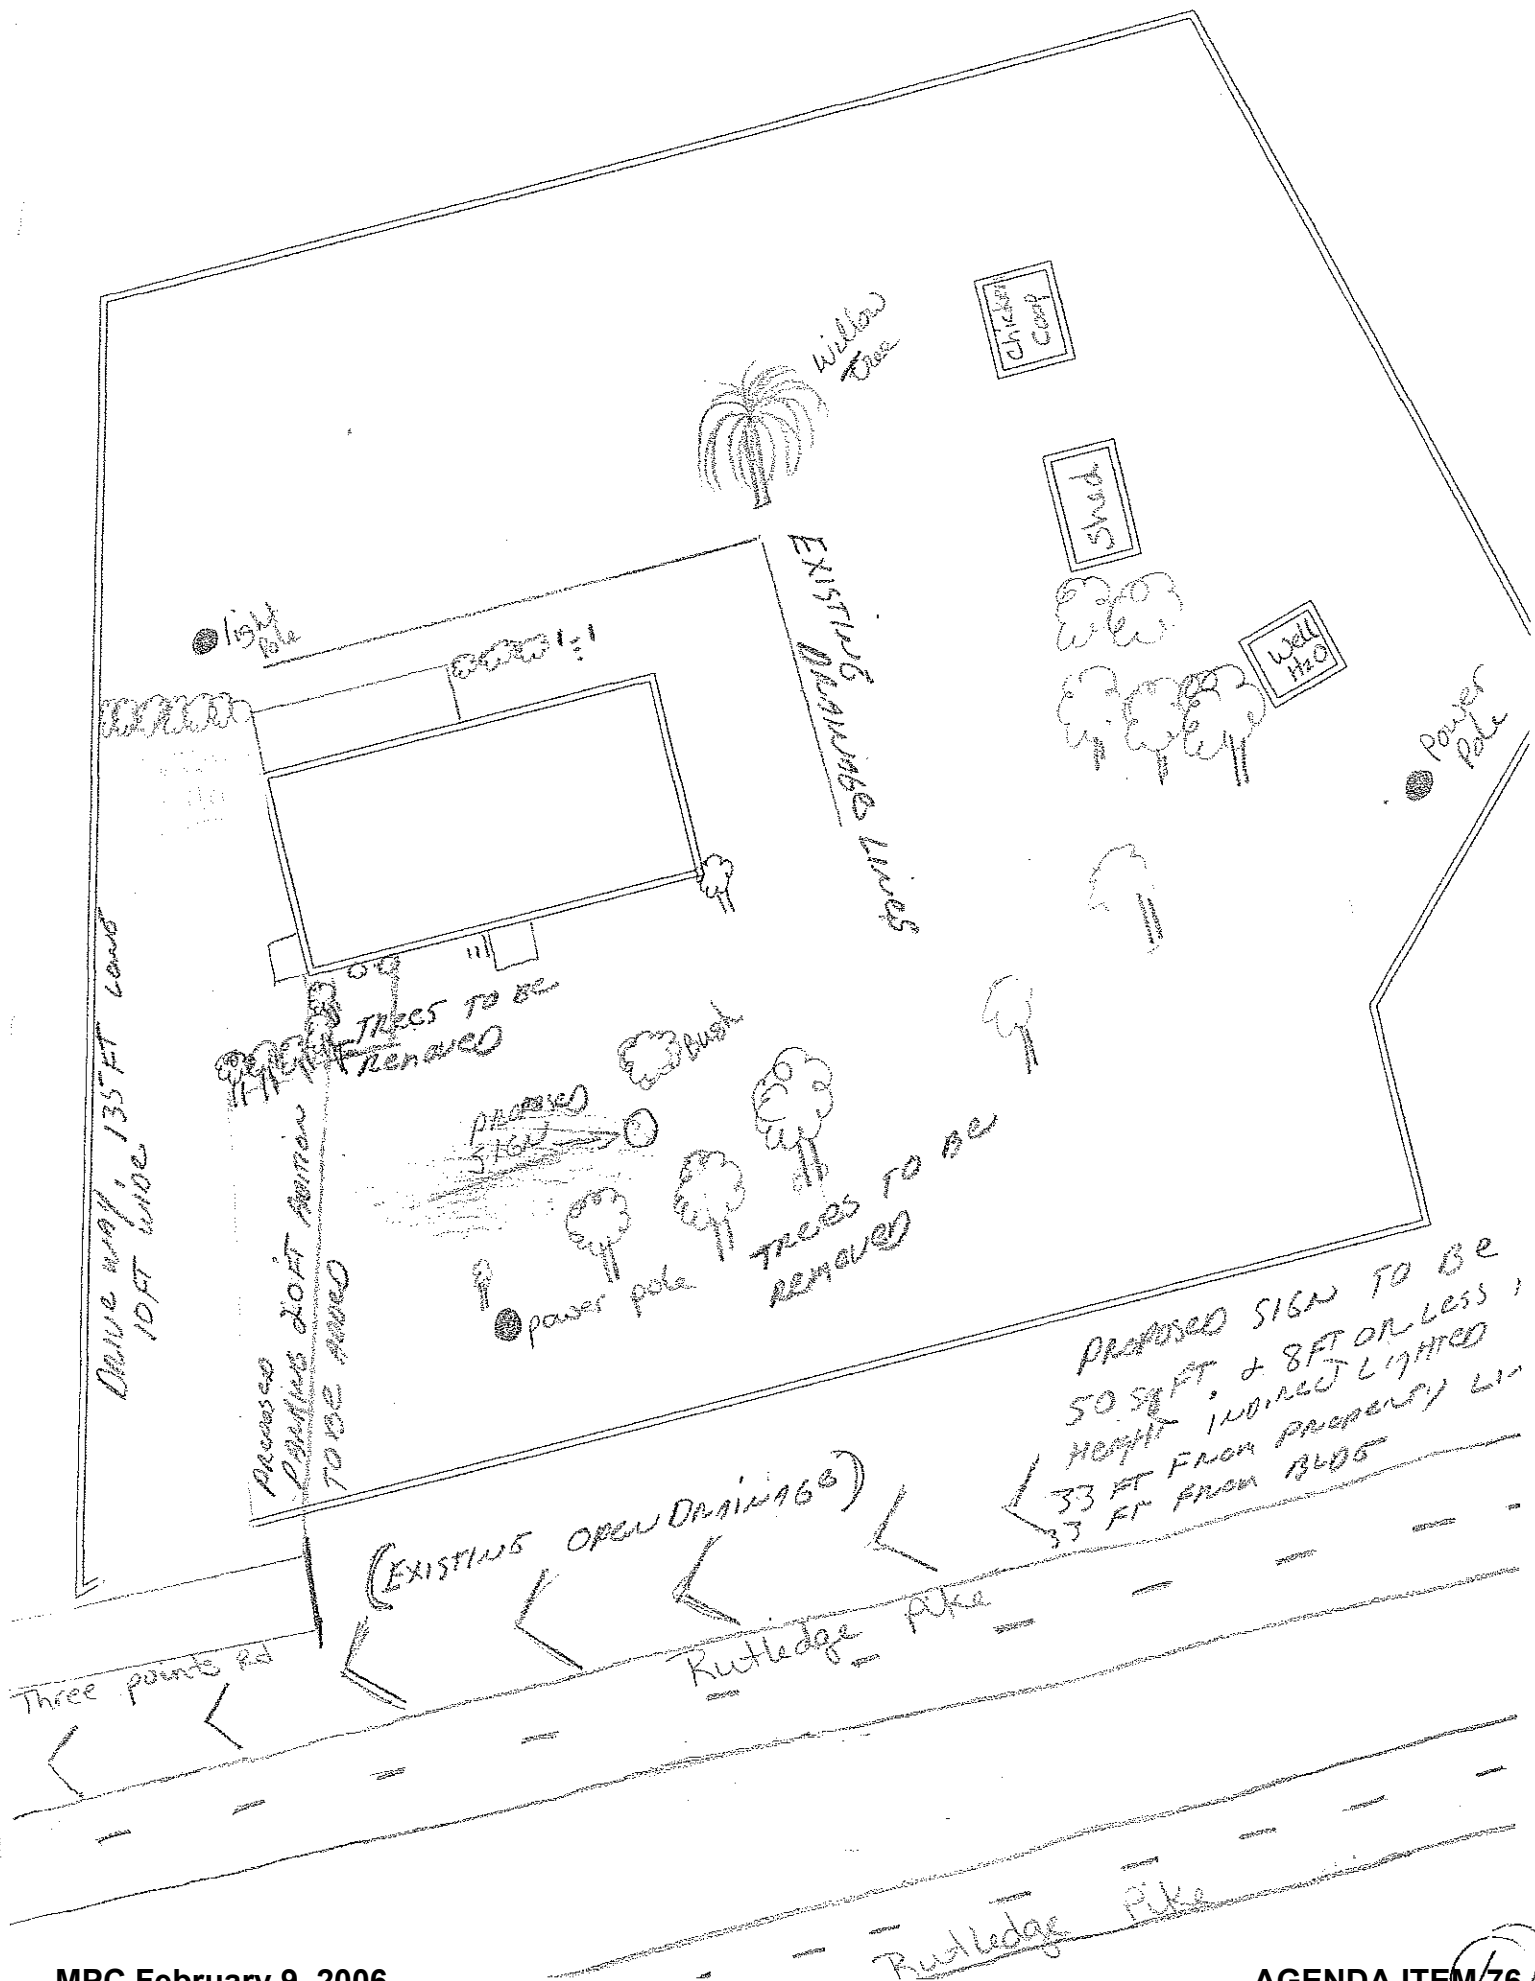 Chicken
Coop
Willow
Tree
Shed
EXISTING
DRAINAGE LINES
light
Pole
Well
H2O
Power
Pole
DRIVE WAY, 135 FT LONG
10 FT WIDE
TREES TO BE
REMOVED
Bush
PROPOSED
SIGN
TREES TO BE
REMOVED
power pole
PROPOSED
PARKING 20 FT ADITION
TO BE ADDED
PROPOSED SIGN TO BE
50 SQ FT. & 8 FT OR LESS
HEIGHT INDIRECT LIGHTED
33 FT FROM PROPERTY LIN
33 FT FROM BLDG
(EXISTING OPEN DRAINAGE)
Three points Rd
Rutledge Pike
Rutledge Pike
MPC February 9, 2006
AGENDA ITEM 76